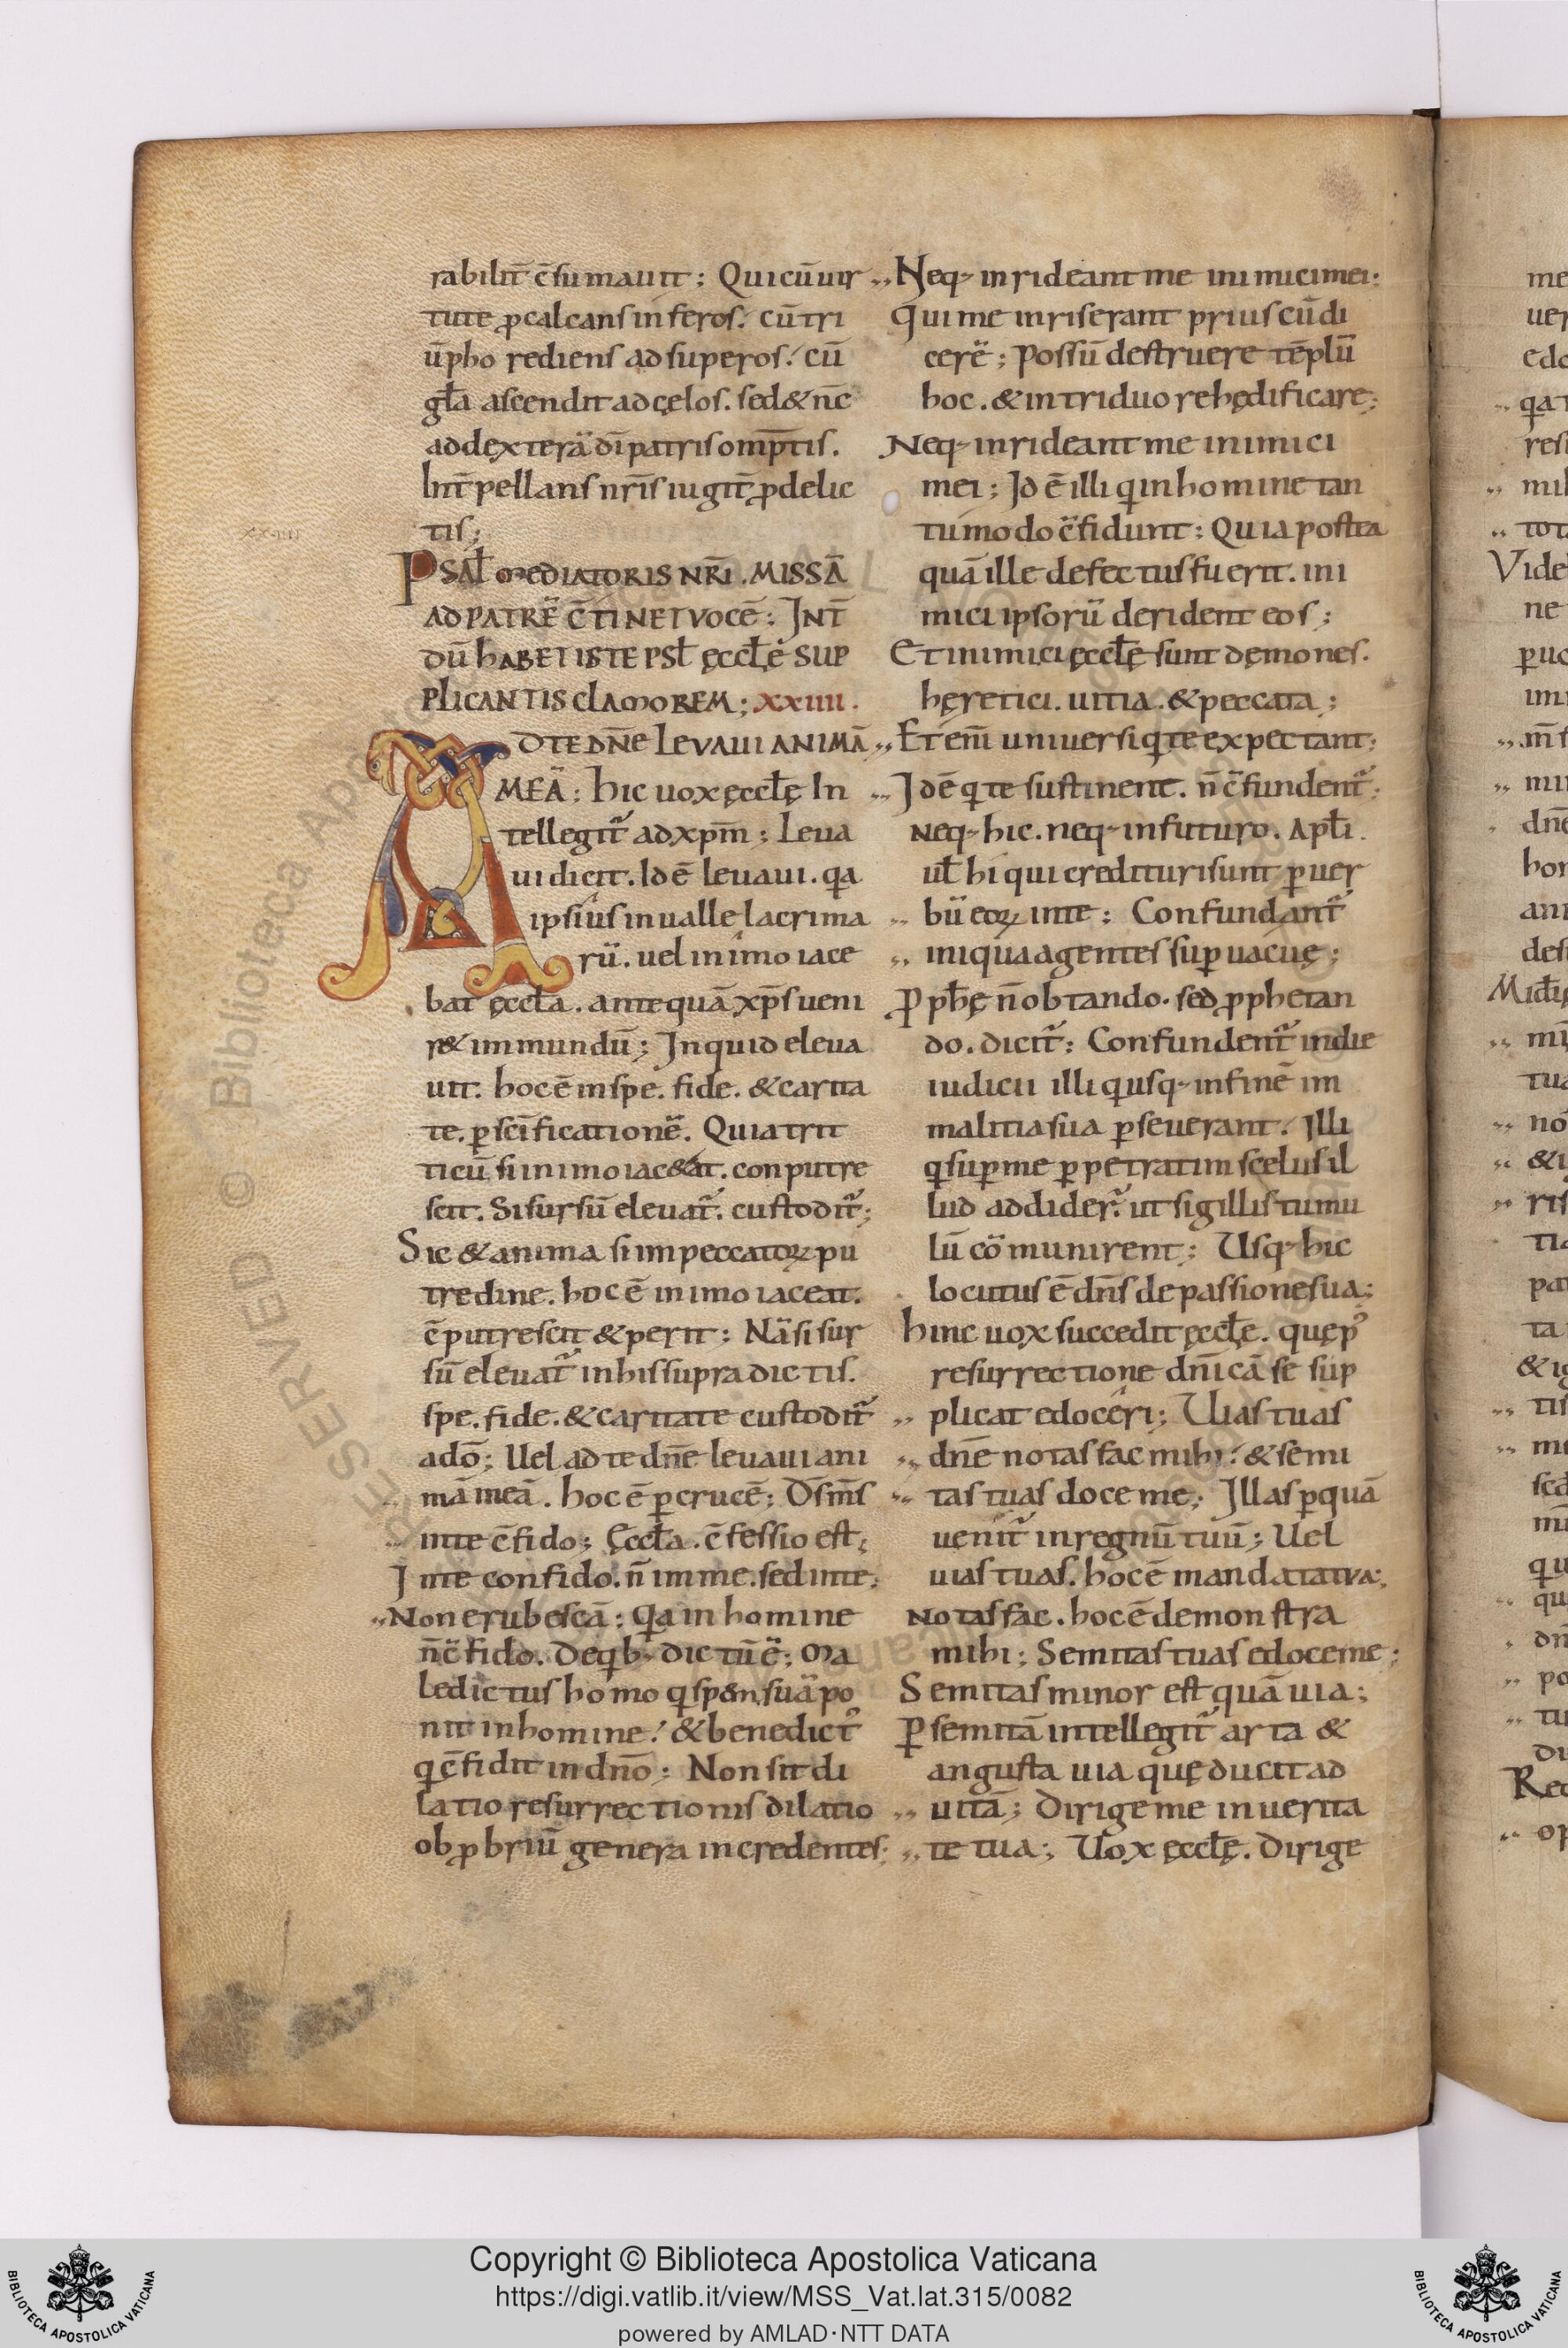 rabilit̄ c̄sumauit; Qui cū uir
tute ꝓcalcans inferos. cū tri
ūpho rediens ad superos. cū
gl̄a ascendit ad cęlos. sed & nc̄
ad dexterā dī patris omp̄tis.
Int̄pellans nr̄is iugit̄ ꝓ delic
tis;
xxiiii
PSAL̄ MEDIATORIS NR̄I. MISSĀ
AD PATRĒ C̄TINET VOCĒ; INT̄
DŪ HABET ISTE PSL̄ ĘCCL̄Ę SUP
PLICANTIS CLAMOREM; XXIIII.
AD TE DN̄E LEVAUI ANIMĀ
MEĀ; hic uox ęccl̄ę In
tellegit̄ ad xpm̄; Leua
ui dicit. Id ē leuaui. qa
ipsius in ualle lacrima
rū. uel in imo iace
bat ęccl̄a. antequā xp̄s ueni
r& in mundū; In quid eleua
uit. hoc ē in spe. fide. & carita
te. ꝑ sc̄ificationē. Quia trit
ticū si in imo iac&at. conputre
scit. Si sursū eleuat̄. custodit̄;
Sic & anima si in peccatoꝝ pu
tredine. hoc ē in imo iaceat.
c̄putrescit & perit; Nā si sur
sū eleuat̄ in his supradictis.
spe. fide. & caritate custodit̄
a dō; Uel ad te dn̄e leuaui ani
mā meā. hoc ē ꝑ crucē; Ds̄ ms̄
in te c̄fido; Ęccl̄a. c̄fessio est;
In te confido. n̄ in me. sed in te;
Non erubescā; Qa in homine
n̄ c̄fido. De qb; dictū ē; Ma
ledictus homo q sp&n suā po
nit in homine. & benedict᾽
q c̄fidit in dn̄o; Non sit di
latio resurrectionis dilatio
obꝓbriū genera in credentes;
Neq; inrideant me inimici mei;
Qui me inriserant prius cū di
cerē; Possū destruere tēplū
hoc. & in triduo rehędificare;
Neq; inrideant me inimici
mei; Id ē illi q in homine tan
tumodo c̄fidunt; Quia postea
quā ille defectus fuerit. ini
mici ipsorū derident eos;
Et inimici ęccl̄ę sunt dęmones.
hęretici. uitia. & peccata;
Etenī uniuersi q te expectant;
Id ē q te sustinent. n̄ c̄fundent̄;
Neq; hic. neq; in futuro. Apl̄i.
ul̄ hi qui credituri sunt ꝑ uer
bū eoꝝ in te; Confundant̄
iniqua agentes suꝑuacuę;
Ꝓph̄ę n̄ obtando. sed ꝓphetan
do. dicit̄; Confundent̄ in die
iudicii illi q usq; in finē in
malitia sua ꝑseuerant. Illi
q suꝑ me ꝑpetratim scelus il
lud addider̄. ut sigillis tumu
lū cōmunirent; Usq; hic
locutus ē dn̄s de passione sua;
hinc uox succedit ęccl̄ę. quę p᾽
resurrectione dn̄icā se sup
plicat edoceri; Uias tuas
dn̄e notas fac mihi. & semi
tas tuas doce me; Illas ꝑ quā
uenit̄ in regnū tuū; Uel
uias tuas. hoc ē mandata tua;
Notas fac. hoc ē demonstra
mihi; Semitas tuas edoce me;
Semitas minor est quā uia;
Ꝑ semitā intellegit̄ arta &
angusta uia quę ducit ad
uitā; Dirige me in uerita
te tua; Uox ęccl̄ę. Dirige
Copyright © Biblioteca Apostolica Vaticana
https://digi.vatlib.it/view/MSS_Vat.lat.315/0082
powered by AMLAD·NTT DATA
BIBLIOTECA APOSTOLICA VATICANA
BIBLIOTECA APOSTOLICA VATICANA